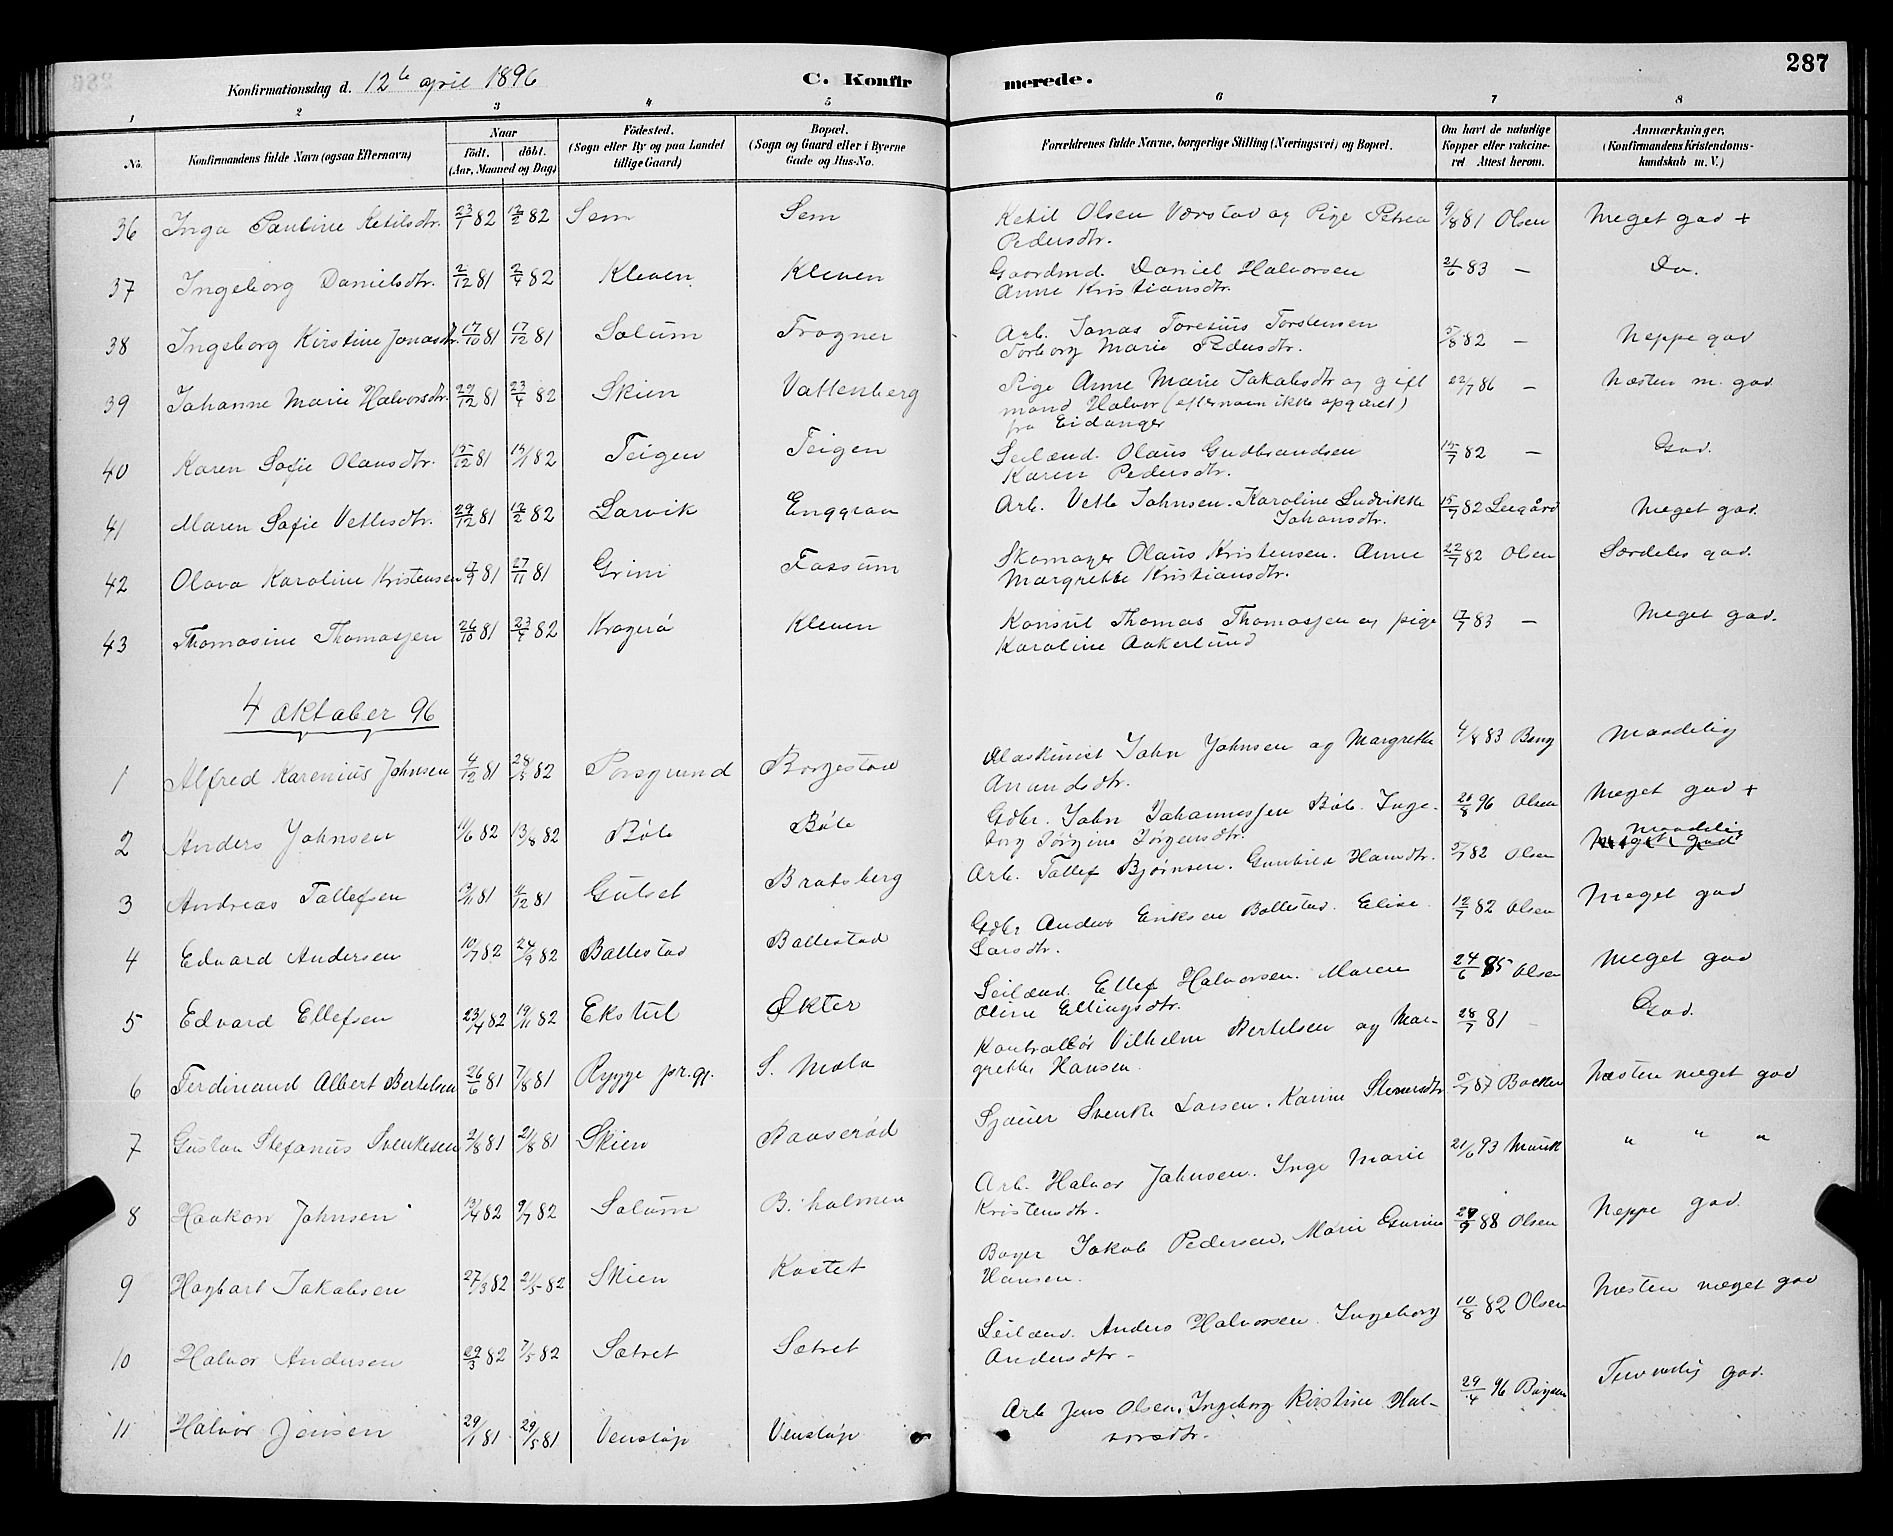 287
Konfirmationsdag d. 12te april 1896 C. Konfirmerede.
1 2 3 4 5 6 7 8
No. Konfirmandens fulde Navn (ogsaa Efternavn) Naar født. døbt. (Aar, Maaned og Dag) Fødested. (Sogn eller By og paa Landet tillige Gaard) Bopæl. (Sogn og Gaard eller i Byerne Gade og Hus-No. Forældrenes fulde Navne, borgerlige Stilling (Næringsvei) og Bopæl. Om havt de naturlige Kopper eller vakcineret Attest herom. Anmærkninger. (Konfirmandens Kristendomskundskab m. V.)
36 Inga Pauline Ketilsdtr. 23/1 82 12/2 82 Sem Sem Ketil Olsen Værstad og Pige Petrea 9/8 81 Olsen Meget god +
Pedersdtr.
37 Ingeborg Danielsdtr. 2/12 81 2/4 82 Kleven Kleven Gaardmd. Daniel Halvorsen 21/6 83 - Do.
Anne Kristiansdtr.
38 Ingeborg Kirstine Jonasdtr. 17/10 81 17/12 81 Solum Frogner Arb. Jonas Toresius Torstensen 5/8 82 - Neppe god
Torborg Marie Pedersdtr.
39 Johanne Marie Halvorsdtr. 29/12 81 23/4 82 Skien Vattenberg Pige Anne Marie Jakobsdtr og gift 22/7 86 - Næsten m. god
mand Halvor (efternavn ikke opgivet)
fra Eidanger
40 Karen Sofie Olausdtr. 15/12 81 15/1 82 Teigen Teigen Seilænd. Olaus Gudbrandsen 15/7 82 - God.
Karen Pedersdtr.
41 Maren Sofie Vetlesdtr. 29/12 81 12/2 82 Larvik Enggrav Arb. Vetle Johnsen. Karoline Ludvikke 15/7 82 Leegård Meget god.
Johansdtr.
42 Olava Karoline Kristensen 4/9 81 27/11 81 Grini Fossum Skomager Olaus Kristensen. Anne 22/7 82 Olsen Særdeles god.
Margrethe Kristiansdtr.
43 Thomasine Thomassen 26/10 81 23/4 82 Kragerø Kleven Konsul Thomas Thomassen og pige 17/7 83 - Meget god.
Karoline Aakerlund
4 oktober 96
1 Alfred Karenius Johnsen 4/12 81 28/5 82 Porsgrund Borgestad Maskinist John Johnsen og Margrethe 4/8 83 Bang Maadelig
Anundsdtr.
2 Anders Johnsen 11/6 82 13/8 82 Bøle Bøle Gdbr. John Johannessen Bøle. Inge- 20/8 96 Olsen Meget god +
borg Jørgine Jørgensdtr.
3 Andreas Tollefsen 81 4/12 81 Gulset Bratsberg Arb. Tollef Bjørnsen. Gunhild Hansdtr. 5/7 82 Olsen Meget god maadelig
4 Edvard Andersen 10/7 82 24/9 82 Ballestad Ballestad Gdbr Anders Eriksen Ballestad. Elise 12/7 82 Olsen Meget god
Larsdtr.
5 Edvard Ellefsen 23/4 82 19/11 82 Ekstul Økter Seilænd. Ellef Halvorsen. Maren 24/6 85 Olsen Meget god
Oline Ellingsdtr.
6 Ferdinand Albert Bertelsen 26/6 81 7/8 81 Rygge pr.gj. S. Mæla Kontrollør Vilhelm Bertelsen og Mar- 28/7 81 God.
grethe Hansen.
7 Gustav Stefanus Svenkesen 2/8 81 21/8 81 Skien Baaserød Sjauer Svenke Larsen. Karine Stenersdtr 5/7 87 Backer Næsten meget god
8 Haakon Johnsen 12/4 82 9/7 82 Solum B. holmen Arb. Halvor Johnsen. Inge Marie 21/6 93 Munk " " "
Kristensdtr.
9 Hagbart Jakobsen 27/3 82 21/5 82 Skien Kastet Bager Jakob Pedersen. Marie Gurine 29/9 88 Olsen Neppe god.
Hansen.
10 Halvor Andersen 29/3 82 7/5 82 Sætret Sætret Seilænd. Anders Halvorsen. Ingeborg 10/8 82 Olsen Næsten meget god
Andersdtr.
11 Halvor Jensen 29/1 81 29/5 81 Venstøp Venstøp Arb Jens Olsen, Ingeborg Kirstine Hal- 29/4 96 god.
vorsdtr.